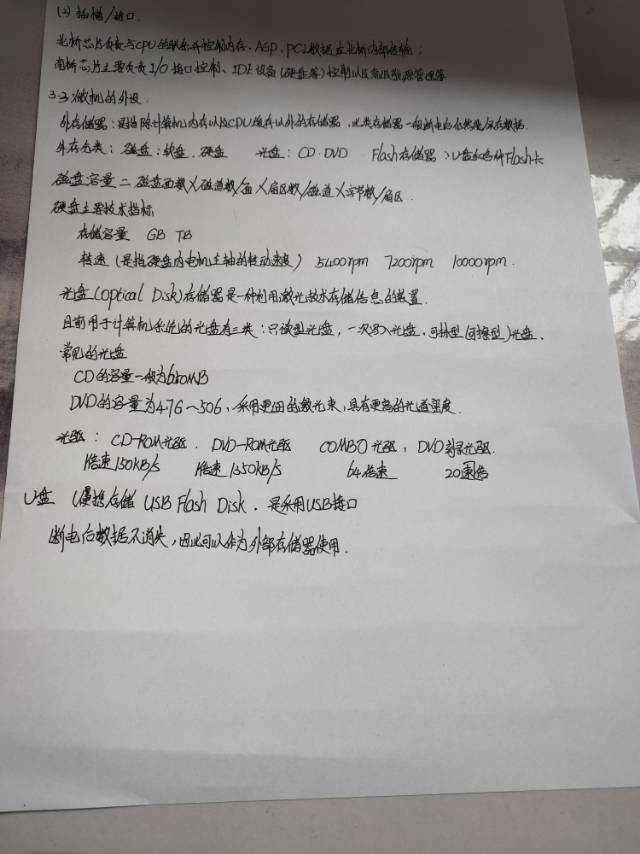 (2) 插槽/接口.
北桥芯片负责与CPU的联系并控制内存、AGP、PCI数据在北桥内部传输;
南桥芯片主要负责I/O接口控制、IDE设备(硬盘等)控制以及高级能源管理等
3.3 微机的外设.
外存储器:是指除计算机内存以及CPU缓存以外的存储器,此类存储器一般断电后仍然能保存数据.
外存分类: 磁盘:软盘、硬盘 光盘:CD.DVD Flash存储器:U盘和各种Flash卡
磁盘容量=磁盘面数X磁道数/面X扇区数/磁道X字节数/扇区.
硬盘主要技术指标
存储容量 GB TB
转速(是指硬盘内电机主轴的转动速度) 5400rpm 7200rpm 10000rpm.
光盘(optical Disk)存储器是一种利用激光技术存储信息的装置.
目前用于计算机系统的光盘有三类:只读型光盘,一次写入光盘,可抹型(可擦型)光盘.
常见的光盘
CD的容量一般为650MB
DVD的容量为4.7G~50G,采用更细的激光束,具有更高的光道密度.
光驱: CD-ROM光驱. DVD-ROM光驱 COMBO光驱, DVD刻录光驱.
1倍速150KB/s 1倍速1350KB/s 64倍速 20速倍
U盘 (便携存储 USB Flash Disk. 是采用USB接口
断电后数据不消失,因此可以作为外部存储器使用.